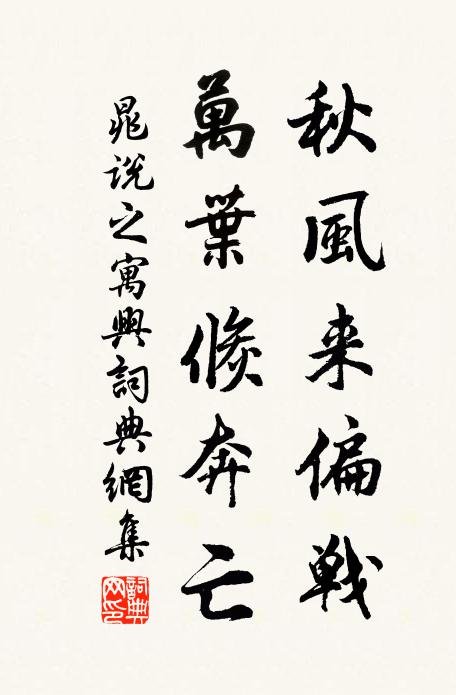 秋風来偏戦
萬葉倐奔亡
晁説之寓興詞典網集
詞典网印